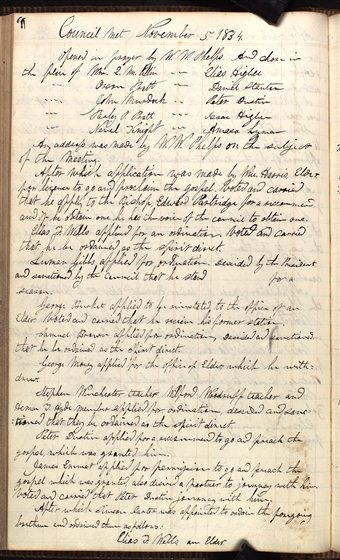 Council met November 5 1834.
Opened in prayer by W. W. Phelps. And chose in
the place of Wm. E. McLellin — Elias Higbee
Orson Pratt — Daniel Stanton
" John Murdock — Peter Dustin
" Parley P Pratt — Isaac Higbee
" Newel Knight — Amasa Lyman
An address was made by W. W. Phelps on the subject
of the Meeting.
After which application was made by Wm. Harris, Elder
for license to go and proclaim the gospel. Voted and carried
that he apply to the Bishop Edward Partridge for a recommend
and if he obtain one he has the voice of the council to obtain one.
Elias F. Wells applied for an ordination. Voted and carried
that he be ordained as the spirit direct.
Lyman Gibbs, applied for ordination. decided by the President
and sanctioned by the Council that he stand for a
season.
George applied to be reinstated to the office of an
Elder Voted and carried that he receive his former station.
Samuel Brown applied for ordination, decided and sanctioned
that he be ordained as the Spirit direct.
George Morey applied for the office of Elder which he with-
drew.
Stephen Winchester teacher, Wilford Woodruff teacher and
Heman T Hyde member applied for ordination, decided and sanc-
tioned that they be ordained as the spirit direct.
Peter Dustin applied for a recommend to go and preach the
gospel, which was granted him.
James Emmet applied for permission to go and preach the
gospel which was granted also desired a partner to journey with him
Voted and carried that Peter Dustin journey with him.
After which Simeon Carter was appointed to ordain the foregoing
brethren and ordained them as follows:
Elias F. Wells an Elder